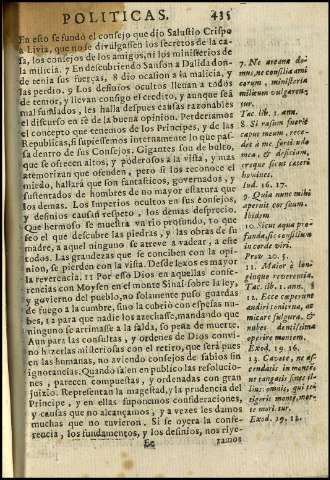 POLITICAS. 435
En esto se fundó el consejo que dio Salustio Crispo
a Livia, que no se divulgassen los secretos de la ca-
sa, los consejos de los amigos, ni los ministerios de
la milicia. 7 En descubriendo Sanson a Dalida don-
de tenia sus fuerças, 8 dio ocasion a la malicia, y
las perdio. 9 Los desinios ocultos llenan a todos
de temor, y llevan consigo el credito, y aunque seã
mal fundados, les halla despues causas razonables
el discurso en fé de la buena opinion. Perderiamos
el concepto que tenemos de los Principes, y de las
Republicas, si supiessemos internamente lo que pas-
sa dentro de sus Consejos. Gigantes son de bulto,
que se ofrecen altos, y poderosos a la vista, y mas
atemorizan que ofenden, pero si los reconoce el
miedo, hallará que son fantasticos, governados, y
sustentados de hombres de no mayor estatura que
los demas. Los Imperios ocultos en sus consejos,
y desinios causan respeto, los demas desprecio.
Que hermoso se muestra vn rio profundo, to que
feo el que descubre las piedras, y las obras de su
madre, a aquel ninguno se atreve a vadear, a este
todos. Las grandezas que se conciben con la opi-
nion, se pierden con la vista. Desde lexos es mayor
la reverencia. 11 Por esso Dios en aquellas confe-
rencias con Moysen en el monte Sinai sobre la ley,
y govierno del pueblo, no solamente puso guardas
de fuego a la cumbre, sino la cubrio con espessas nu-
bes, 12 para que nadie los azechasse, mandando que
ninguno se arrimasse a la falda, so pena de muerte.
Aun para las consultas, y ordenes de Dios convi-
no hazerlas misteriosas con el retiro, que será pues
en las humanas, no aviendo consejos de sabios sin
ignorancias. Quando salen en publico las resolucio-
nes, parecen compuestas, y ordenadas con gran
juizio. Representan la magestad, y la prudencia del
Principe, y en ellas suponemos consideraciones,
y causas que no alcançamos, y a vezes les damos
muchas que no tuvieron. Si se oyera la confe-
rencia, los fundamentos, y los desinios, nos rie-
Ee ramos
7. Ne arcana do-
mus, ne consilia ami
corum, ministeria
militum vulgaren-
tur.
Tac. lib. 1. ann.
8. Si rasum fuerit
caput meum, rece-
det à me fortitudo
mea, & deficiam,
eroque sicut caeteri
homines.
Iud. 16. 17.
9. Quia nunc mihi
aperuit cor suum.
Ibidem
10. Sicut aqua pro-
funda, sic consilium
in corde viri.
Prov. 20. 5.
11. Maior è lon-
ginquo reverentia.
Tac. lib. 1. ann.
12. Ecce omperunt
audiri tonitrua, ac
micare fulgura, &
nubes densissima
operire montem.
Exod. 19. 16.
13. Cavete, ne as-
cendatis in montẽ,
nec tangatis fines il-
lius: omnis, qui te-
tigerit monte, mor-
te morietur.
Exod. 19. 12.